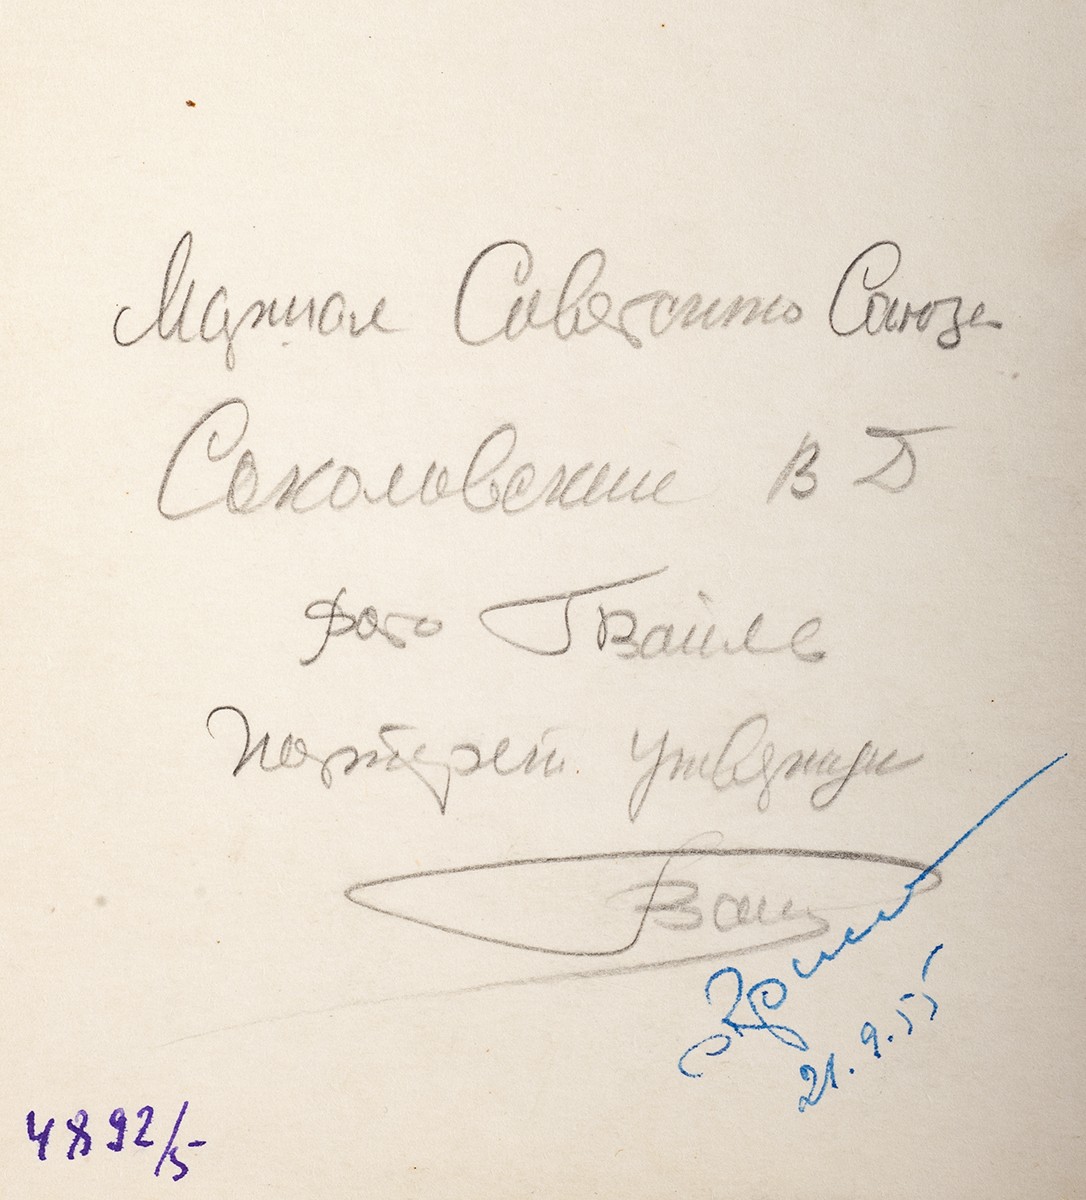 Маршал Советского Союза
Соколовский В Д
Фото Г Вайль
Портрет утвержден
Г Вайль
21.9.55
4892/5